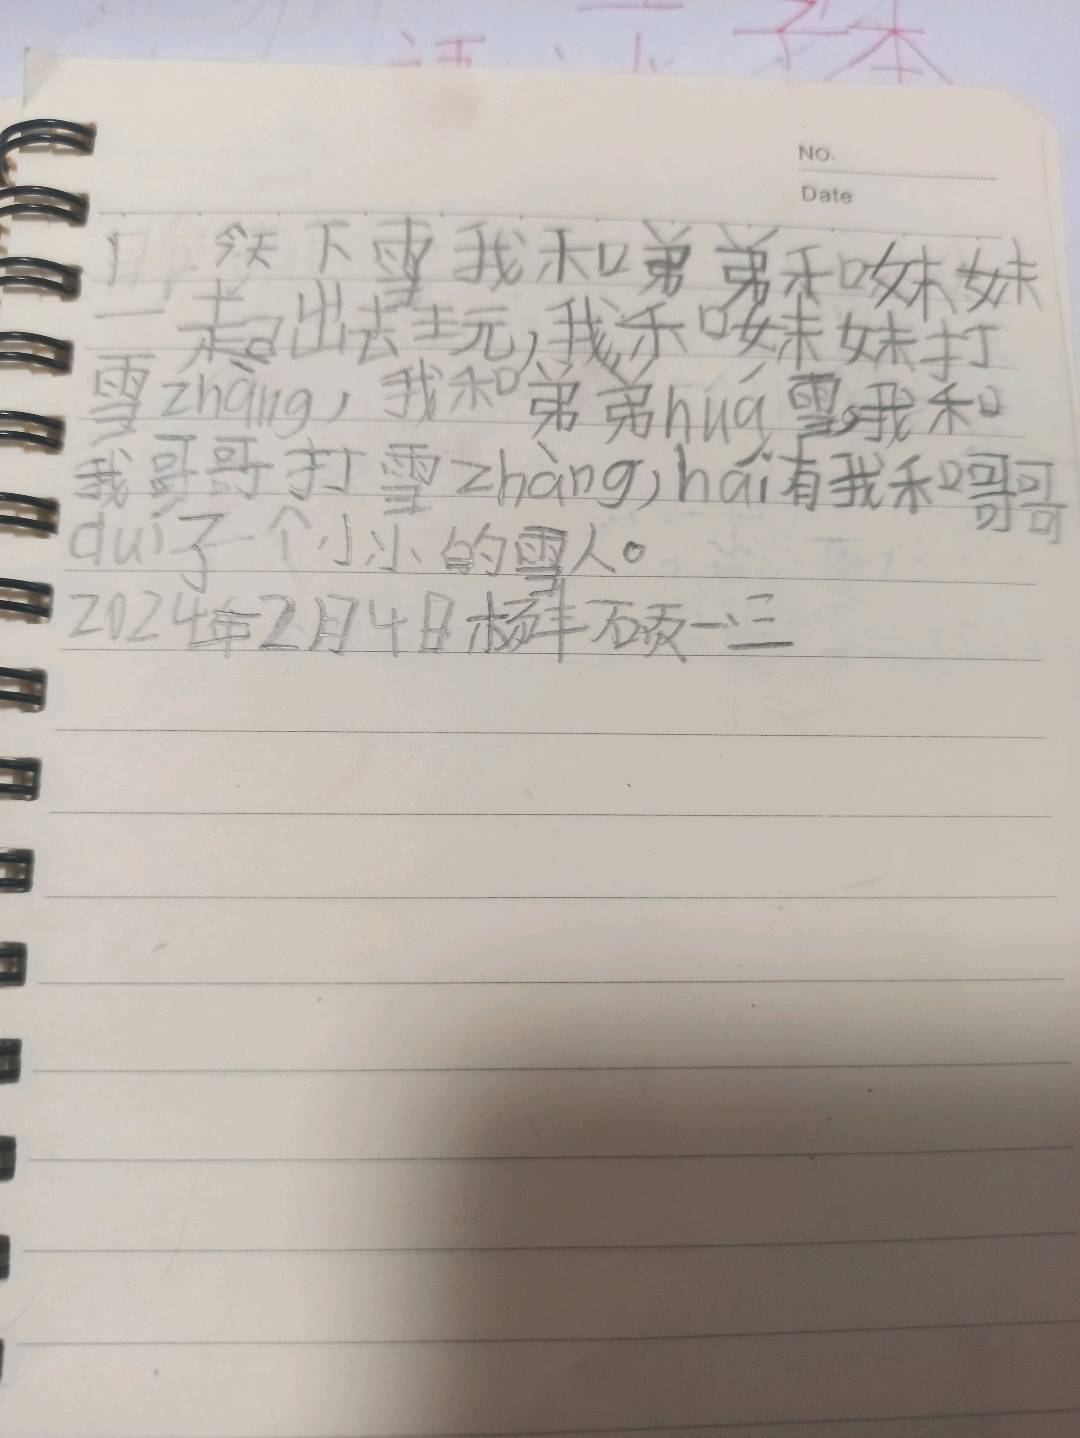 子本
NO.
Date
今天下雪我和弟弟和妹妹
一起出去玩,我和妹妹打
雪zhàng,我和弟弟huá雪。我和
我哥哥打雪zhàng,hái有我和哥哥
duī了一个小小的雪人。
2024年2月4日杨丰硕一三